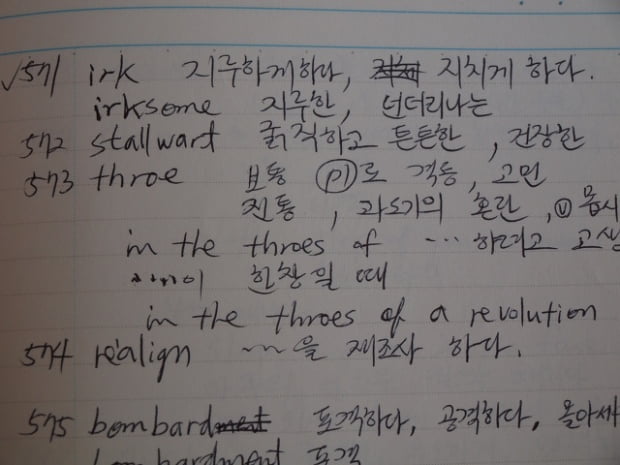 √571 irk 지루하게하다, 지치게 하다.
irksome 지루한, 넌더리나는
572 stallwart 굵직하고 튼튼한, 건장한
573 throe 보통 pl로 격통, 고민
진통, 과도기의 혼란, ⓥ 몹시
in the throes of … 하려고 고생
한창일 때
in the throes of a revolution
574 realign ~을 재조사 하다.
575 bombardment 포격하다, 공격하다, 몰아세
bombardment 포격